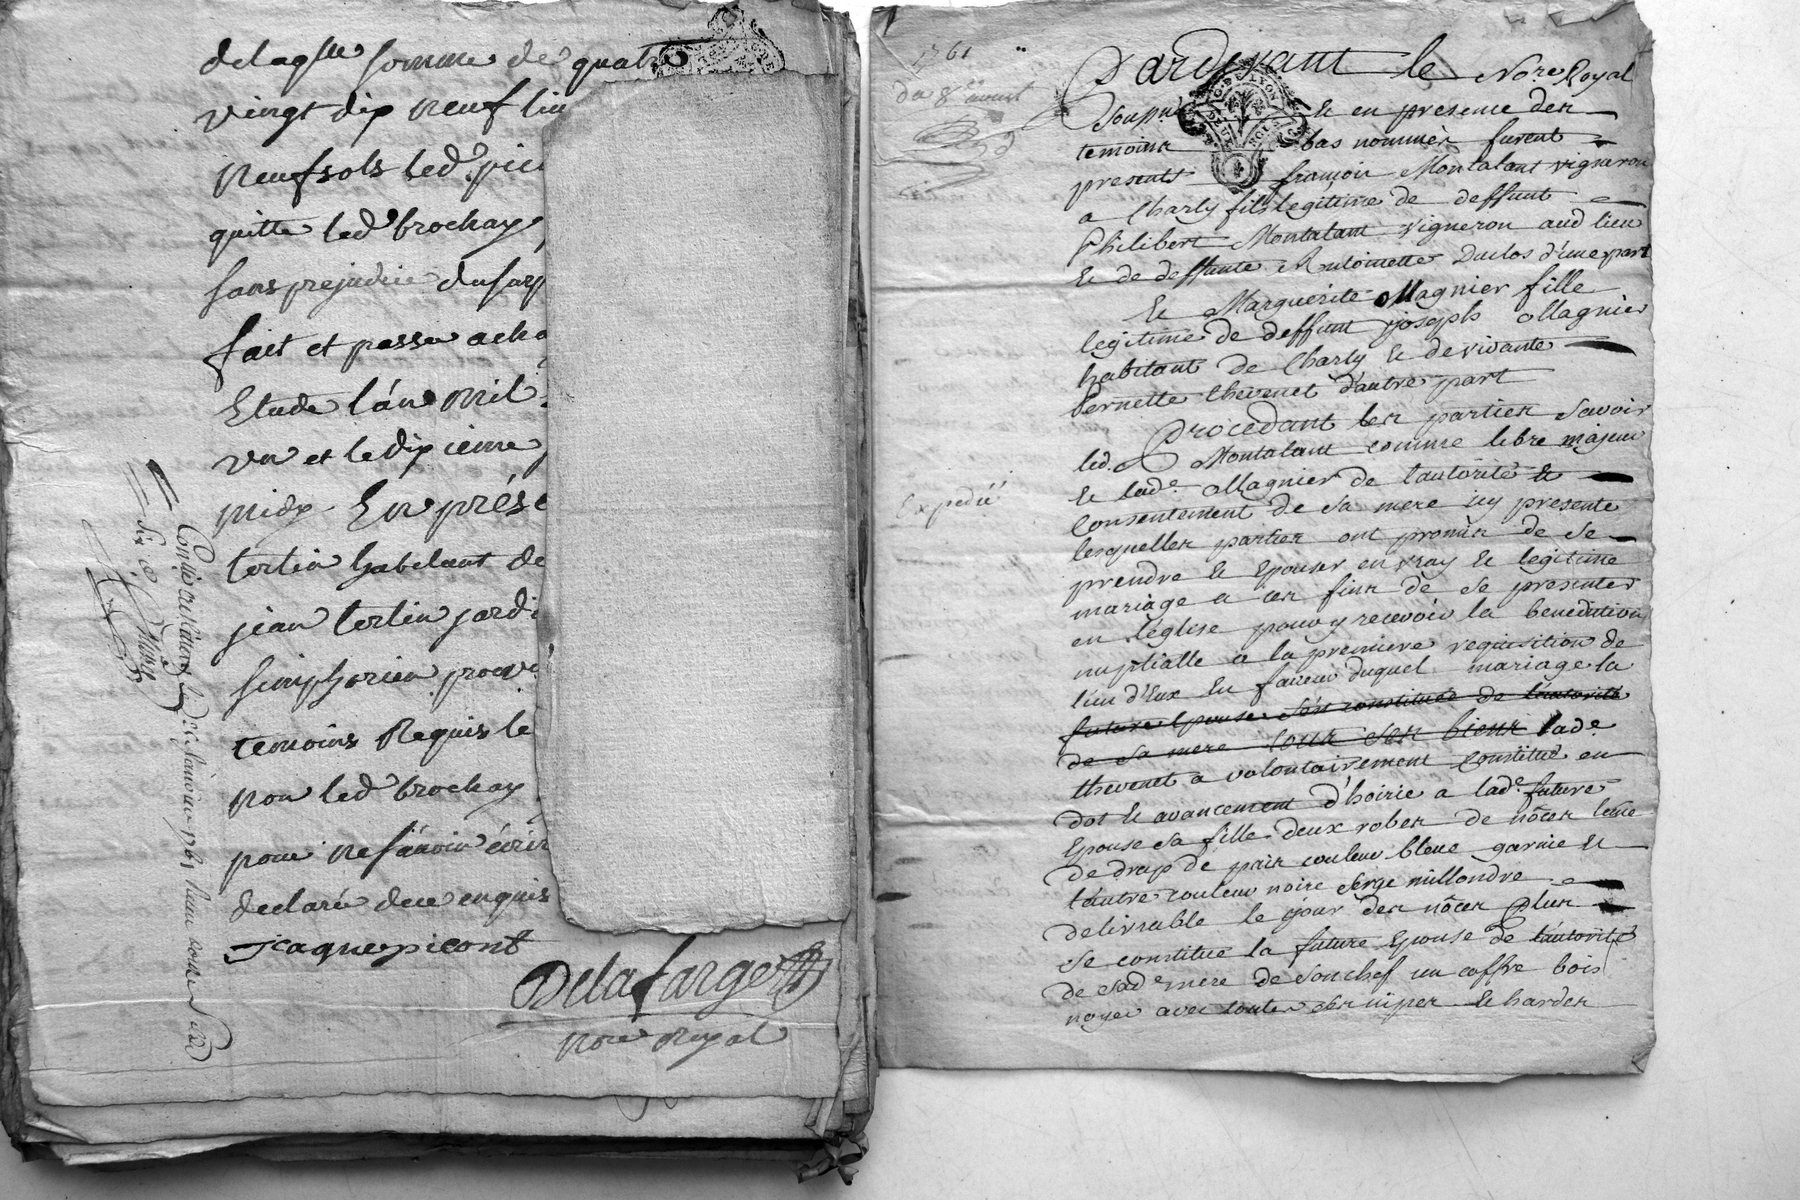 somme de quatre
vingt dix neuf liv
neuf sols led. pic
quitte led brochay
sans prejudice
fait et passé a cha
Etude l'an mil
un et le dixieme
midy. En prése
tortin habitant de
jean tortin jardi
simphorien
temoins Requis le
pour led brochay
pour ne sçavoir écrir
declaré de ce enquis
Jcaque picont
Delafarge
nore Royal
1761
du 8e aoust
Expedié
Pardevant le Nore Royal
Soussi & en presence des
temoins bas nommés furent
presents françois Montalant vigneron
a Charly fils legitime de deffunt
Philibert Montalant vigneron aud lieu
& de deffunte Antoinette Duclos d'une part
& Marguerite Magnier fille
legitime de deffunt joseph Magnier
habitant de Charly & de vivante
bernette thevenet d'autre part
Procedant les parties savoir
led. Montalant comme libre majeur
& lade. Magnier de l'autorité &
consentement de sa mere icy presente
lesquelles parties ont promis de se
prendre & Epouser en vray & legitime
mariage a ces fins de se presenter
en l'église pour y recevoir la benediction
nuptialle a la premiere requisition de
l'un d'Eux En faveur duquel mariage la
future Epouse s'est constituée de l'autorité
de sa mere tous ses biens lade.
thevenet a volontairement constitué en
dot & avancement d'hoirie a lade. future
Epouse sa fille deux robes de nôces l'une
de drap de païs couleur bleue garnie &
l'autre couleur noire serge
delivrable le jour des nôces Plus
se constitue la future Epouse de l'autorité
de sade mere de son chef un coffre bois
noyer avec toutes ses nipes & hardes